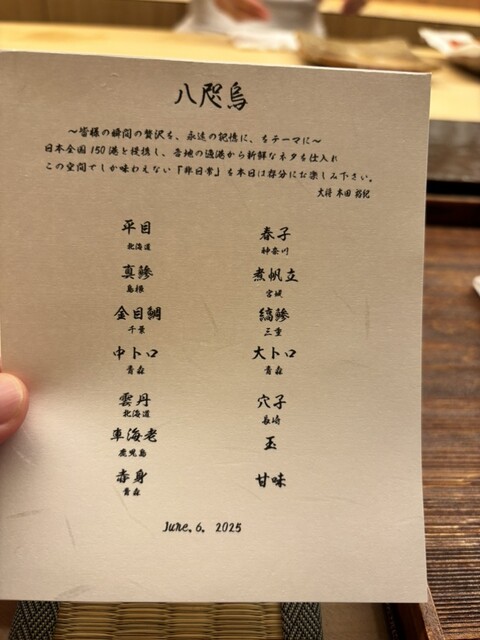 八咫烏
～皆様の瞬間の贅沢を、永遠の記憶に、をテーマに～
日本全国150港と提携し、各地の漁港から新鮮なネタを仕入れ
この空間でしか味わえない「非日常」を本日は存分にお楽しみ下さい。
大将 本田 裕紀
平目
北海道
真鰺
島根
金目鯛
千葉
中トロ
青森
雲丹
北海道
車海老
鹿児島
赤身
青森
春子
神奈川
煮帆立
宮城
縞鰺
三重
大トロ
青森
穴子
長崎
玉
甘味
June. 6. 2025